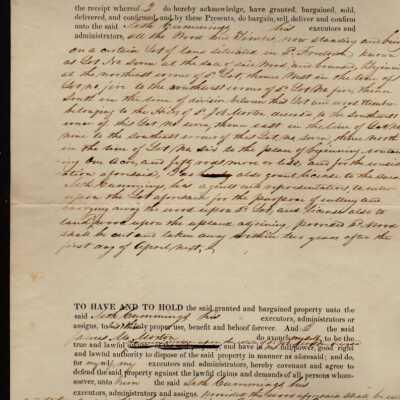 the receipt whereof I do hereby acknowledge, have granted, bargained, sold,
delivered, and confirmed, and by these Presents, do bargain, sell, deliver and confirm
unto the said Seth Cummings his executors and
administrators, all the Wood and Timber, now standing and being
on a certain lot of land situated in known
as Lot No Seven at the and bounded, Beginning
at the northeast corner of Sd Lot, thence West in the line of
Lot No to the southwest corner of Sd Lot No then
South in the line of division between this Lot and wood
belonging to the Heirs of deceased to the southwest
corner of this Lot No Seven, thence east in the line of Lot No
nine to the southeast corner of this Lot No seven, thence North
in the line of Lot No six to the place of beginning, containing
One acre, and fifty rods more or less, and for the consider
ation aforesaid, I do also grant license to the said
Seth Cummings, his and representatives to enter
upon the Lot aforesaid for the purpose of cutting and
carrying away the wood upon Sd Lot, and license also to
land wood upon the upland adjoining, provided Sd Wood
shall be cut and taken away within two years after the
first day of April next.
TO HAVE AND TO HOLD the said granted and bargained property unto the
said Seth Cummings his executors, administrators or
assigns, to his only proper use, benefit and behoof forever. And I the said
do avouch myself to be the
true and lawful and have in full power, good right
and lawful authority to dispose of the said property in manner as aforesaid; and do,
for my executors and administrators, hereby covenant and agree to
defend the said property against the lawful claims and demands of all persons whom-
soever, unto him the said Seth Cummings his
executors, administrators and assigns provided the wood aforesaid shall be